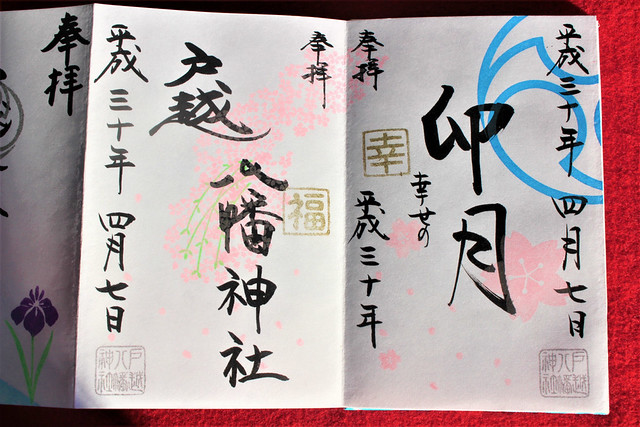 平成三十年 四月七日
卯月
幸せの
奉拝
幸
平成三十年
戸越八幡神社
奉拝
戸越八幡神社
福
平成三十年 四月七日
戸越八幡神社
奉拝